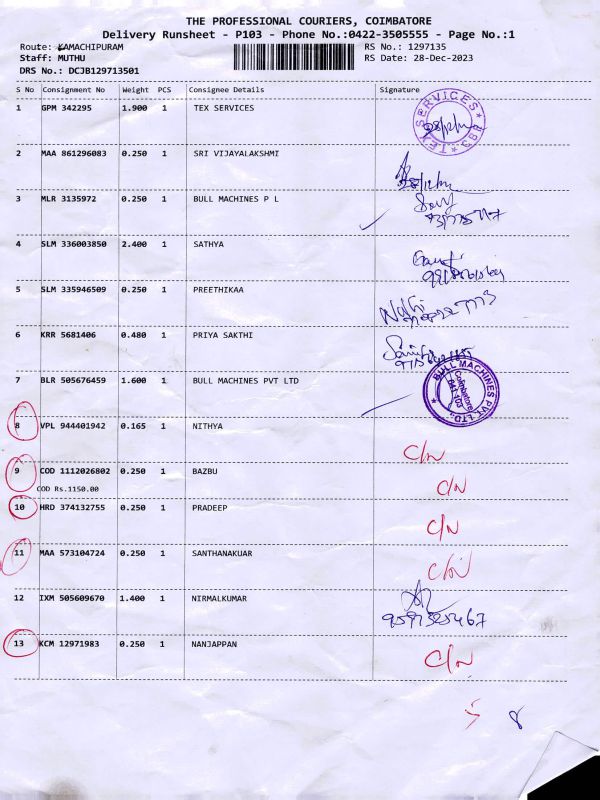 THE PROFESSIONAL COURIERS, COIMBATORE
Delivery Runsheet - P103 - Phone No.:0422-3505555 - Page No.:1
Route: KAMACHIPURAM RS No.: 1297135
Staff: MUTHU RS Date: 28-Dec-2023
DRS No.: DCJB129713501
S No Consignment No Weight PCS Consignee Details Signature
1 GPM 342295 1.900 1 TEX SERVICES
TEX SERVICES * CBE *
2 MAA 861296083 0.250 1 SRI VIJAYALAKSHMI
3 MLR 3135972 0.250 1 BULL MACHINES P L
4 SLM 336003850 2.400 1 SATHYA
5 SLM 335946509 0.250 1 PREETHIKAA
6 KRR 5681406 0.480 1 PRIYA SAKTHI
7 BLR 505676459 1.600 1 BULL MACHINES PVT LTD
BULL MACHINES PVT LTD. * Coimbatore 641 103
8 VPL 944401942 0.165 1 NITHYA C/N
9 COD 1112026802 0.250 1 BAZBU C/N
COD Rs.1150.00
10 HRD 374132755 0.250 1 PRADEEP C/N
11 MAA 573104724 0.250 1 SANTHANAKUAR C/N
12 IXM 505609670 1.400 1 NIRMALKUMAR
13 KCM 12971983 0.250 1 NANJAPPAN C/N
5 8